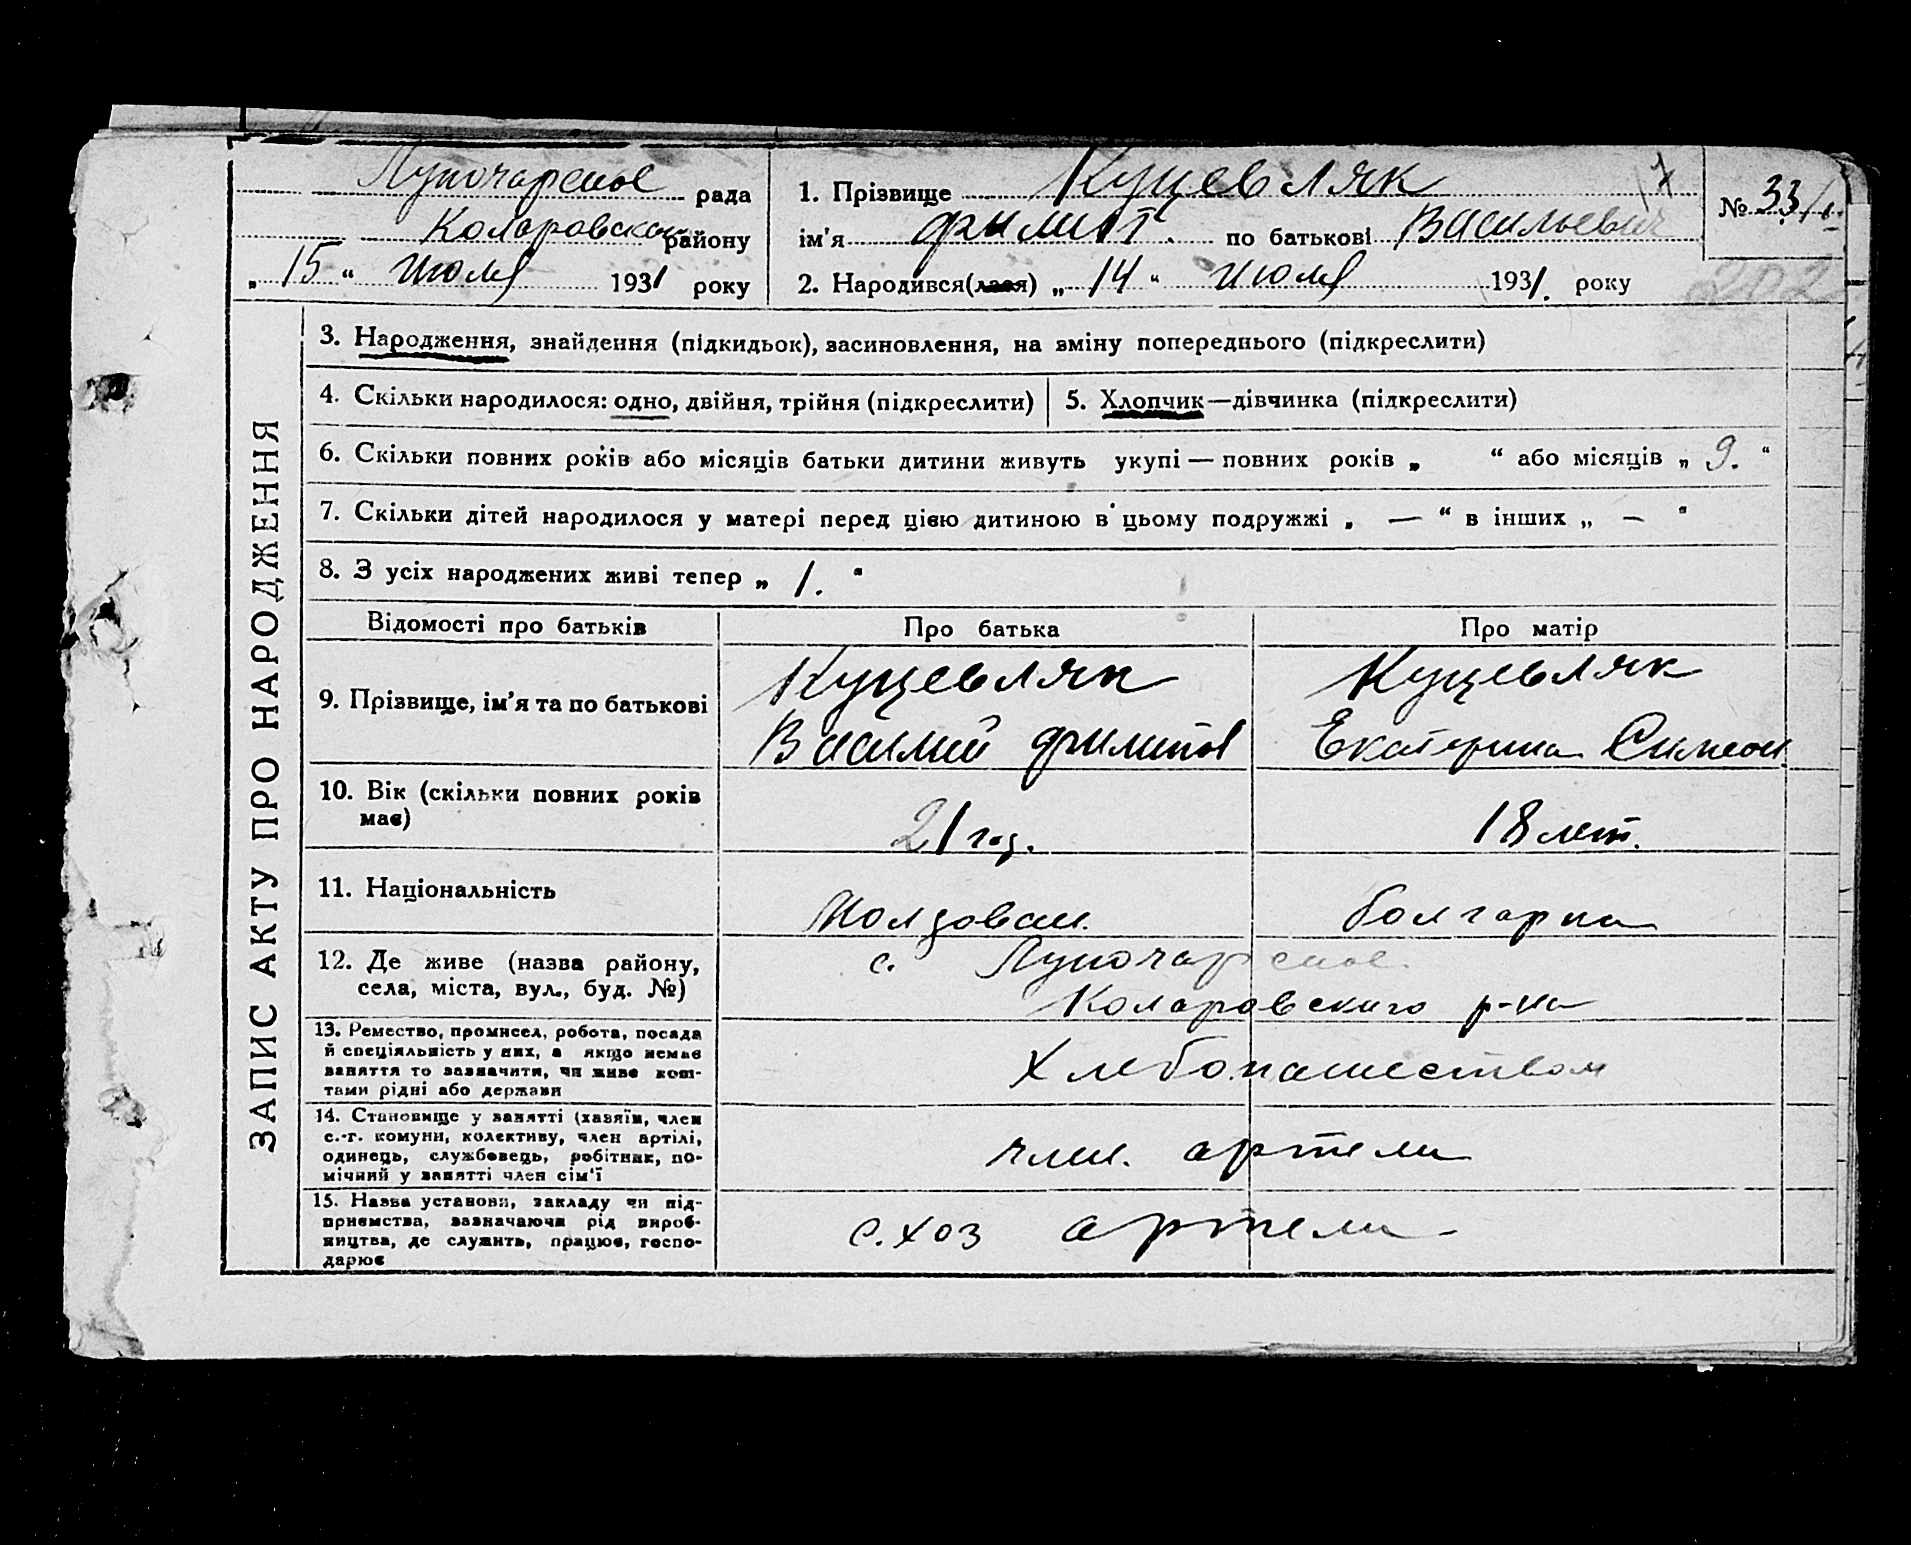 Луночарское рада
Коларовского району
„ 15 “ Июля 1931 року
1. Прізвище Куцевляк
ім'я Филипп. по батькові Васильевич
2. Народився(лася) „ 14 “ Июля 1931. року
№ 33/
17
202
ЗАПИС АКТУ ПРО НАРОДЖЕННЯ
3. Народження, знайдення (підкидьок), засиновлення, на зміну попереднього (підкреслити)
4. Скільки народилося: одно, двійня, трійня (підкреслити)
5. Хлопчик—дівчинка (підкреслити)
6. Скільки повних років або місяців батьки дитини живуть укупі — повних років „ “ або місяців „ 9. “
7. Скільки дітей народилося у матері перед цією дитиною в цьому подружжі „ — “ в інших „ — “
8. З усіх народжених живі тепер „ 1. “
Відомості про батьків Про батька Про матір
9. Прізвище, ім'я та по батькові
Куцевляк
Василий Филипов
Куцевляк
Екатерина Симеон.
10. Вік (скільки повних років
має)
21 год.
18 лет.
11. Національність
Молдован.
болгарка
12. Де живе (назва району,
села, міста, вул., буд. №)
с. Луночарское.
Коларовского р-на
13. Ремество, промисел, робота, посада
й спеціяльність у них, а якщо немає
заняття то зазначити, чи живе кош-
тами рідні або держави
Хлебопашеством
14. Становище у занятті (хазяїн, член
с.-г. комуни, колективу, член артілі,
одинець, службовець, робітник, по-
мічний у занятті член сім'ї
член. артели
15. Назва установи, закладу чи під-
приємства, зазначаючи рід вироб-
ництва, де служить, працює, госпо-
дарює
с.хоз артели